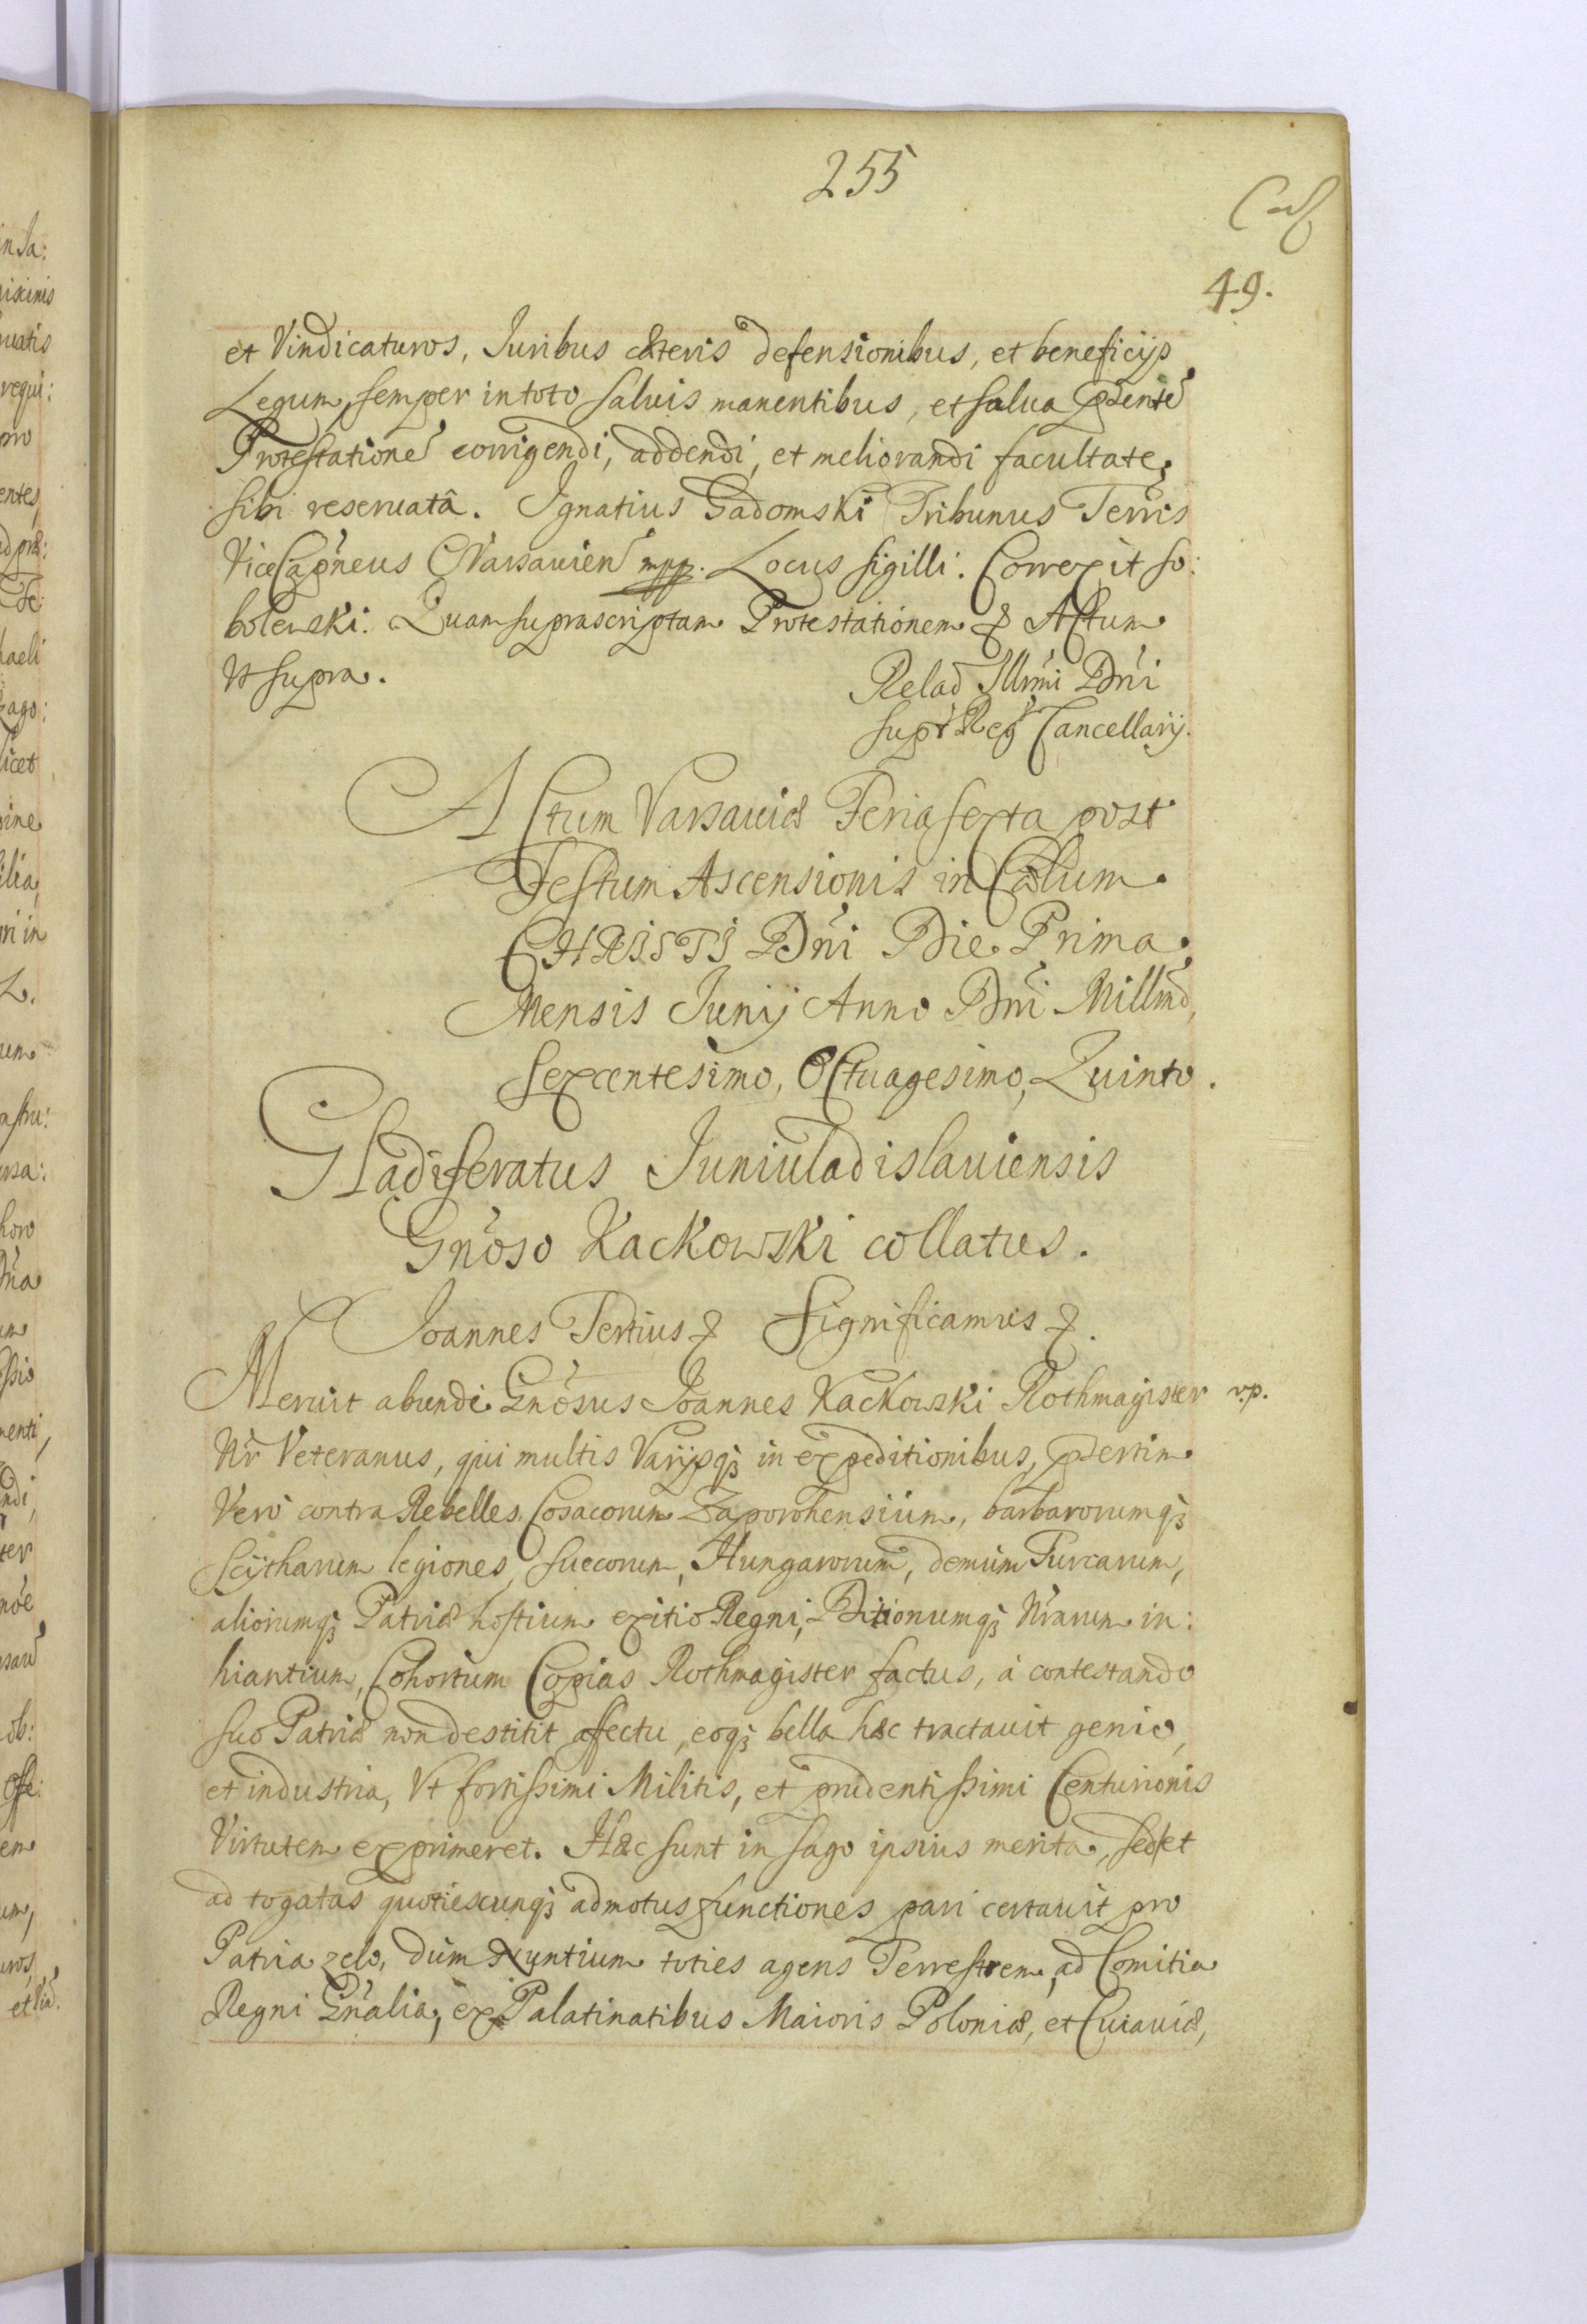 255
49.
et Vindicaturos, Juribus cæteris defensionibus, et beneficijs
Legum, semper in toto saluis manentibus, et salua pñte
Protestatione corrigendi, addendi, et meliorandi facultate,
sibi reseruatâ. Ignatius Gadomski Tribunus Terris
ViceCapneus Varsauien mpp. Locus sigilli. Correxit So:
bolewski. Quam suprascriptam Protestationem & Actum
Vt supra.
Relao Illrmi Dñi
sup Reg Cancellarij.
Actum Varsauiæ Feria sexta post
Festum Ascensionis in Cælum
CHRISTI Dñi Die Prima
Mensis Junij Anno Dñi Millmo,
Sexcentesimo, Octuagesimo, Quinto.
Gladiferatus Juniuladislauiensis
Gnoso Kackowski collatus.
Joannes Tertius & Significamus &.
Meruit abunde Gnosus Joannes Kackowski Rothmagister v.p.
Nr Veteranus, qui multis Varijsq; in expeditionibus, psertim
Vero contra Rebelles Cosacorum Zaporohensium, barbarorumq;
Scytharum legiones, Suecorum, Hungarorum, demùm Turcarum,
aliorumq; Patriæ hostium exitio Regni, Ditionumq; Nrarum in:
hiantium, Cohortum Copias Rothmagister factus, à contestando
suo Patriæ non destitit affectu, eoq; bella hæc tractauit genio,
et industria, Vt fortissimi Militis, et prudentissimi Centurionis
Virtutem exprimeret. Hæc sunt in sago ipsius merita, sed et
ad togatas quotiescunq; admotus functiones pari certauit pro
Patria zelo, dùm Nuntium toties agens Terrestrem, ad Comitia
Regni Gnalia, ex Palatinatibus Maioris Poloniæ, et Cuiauiæ,